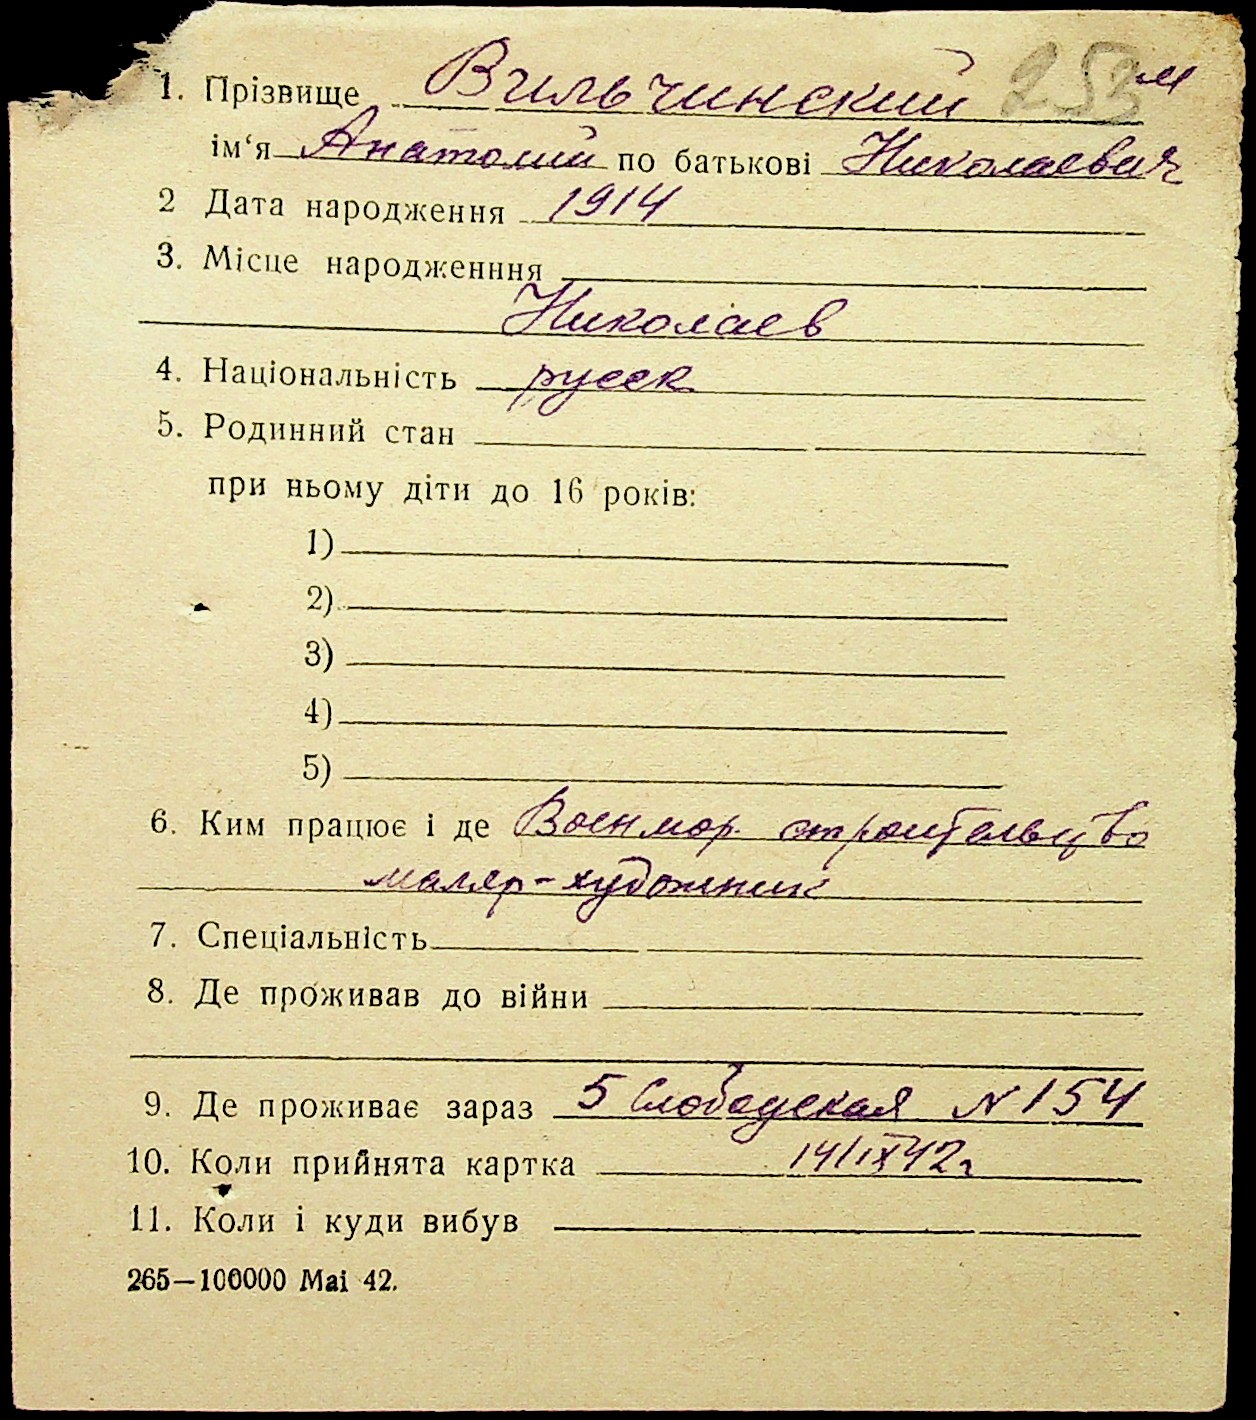 1. Прізвище Вильчинский 253 м
ім‘я Анатолий по батькові Николаевич
2 Дата народження 1914
3. Місце народженння
Николаев
4. Національність русск
5. Родинний стан
при ньому діти до 16 років:
1)
2)
3)
4)
5)
6. Ким працює і де Воен мор. строительство
маляр-художник
7. Спеціальність
8. Де проживав до війни
9. Де проживає зараз 5 Слободская N 154
10. Коли прийнята картка 14/IX 42 г
11. Коли і куди вибув
265—100000 Mai 42.